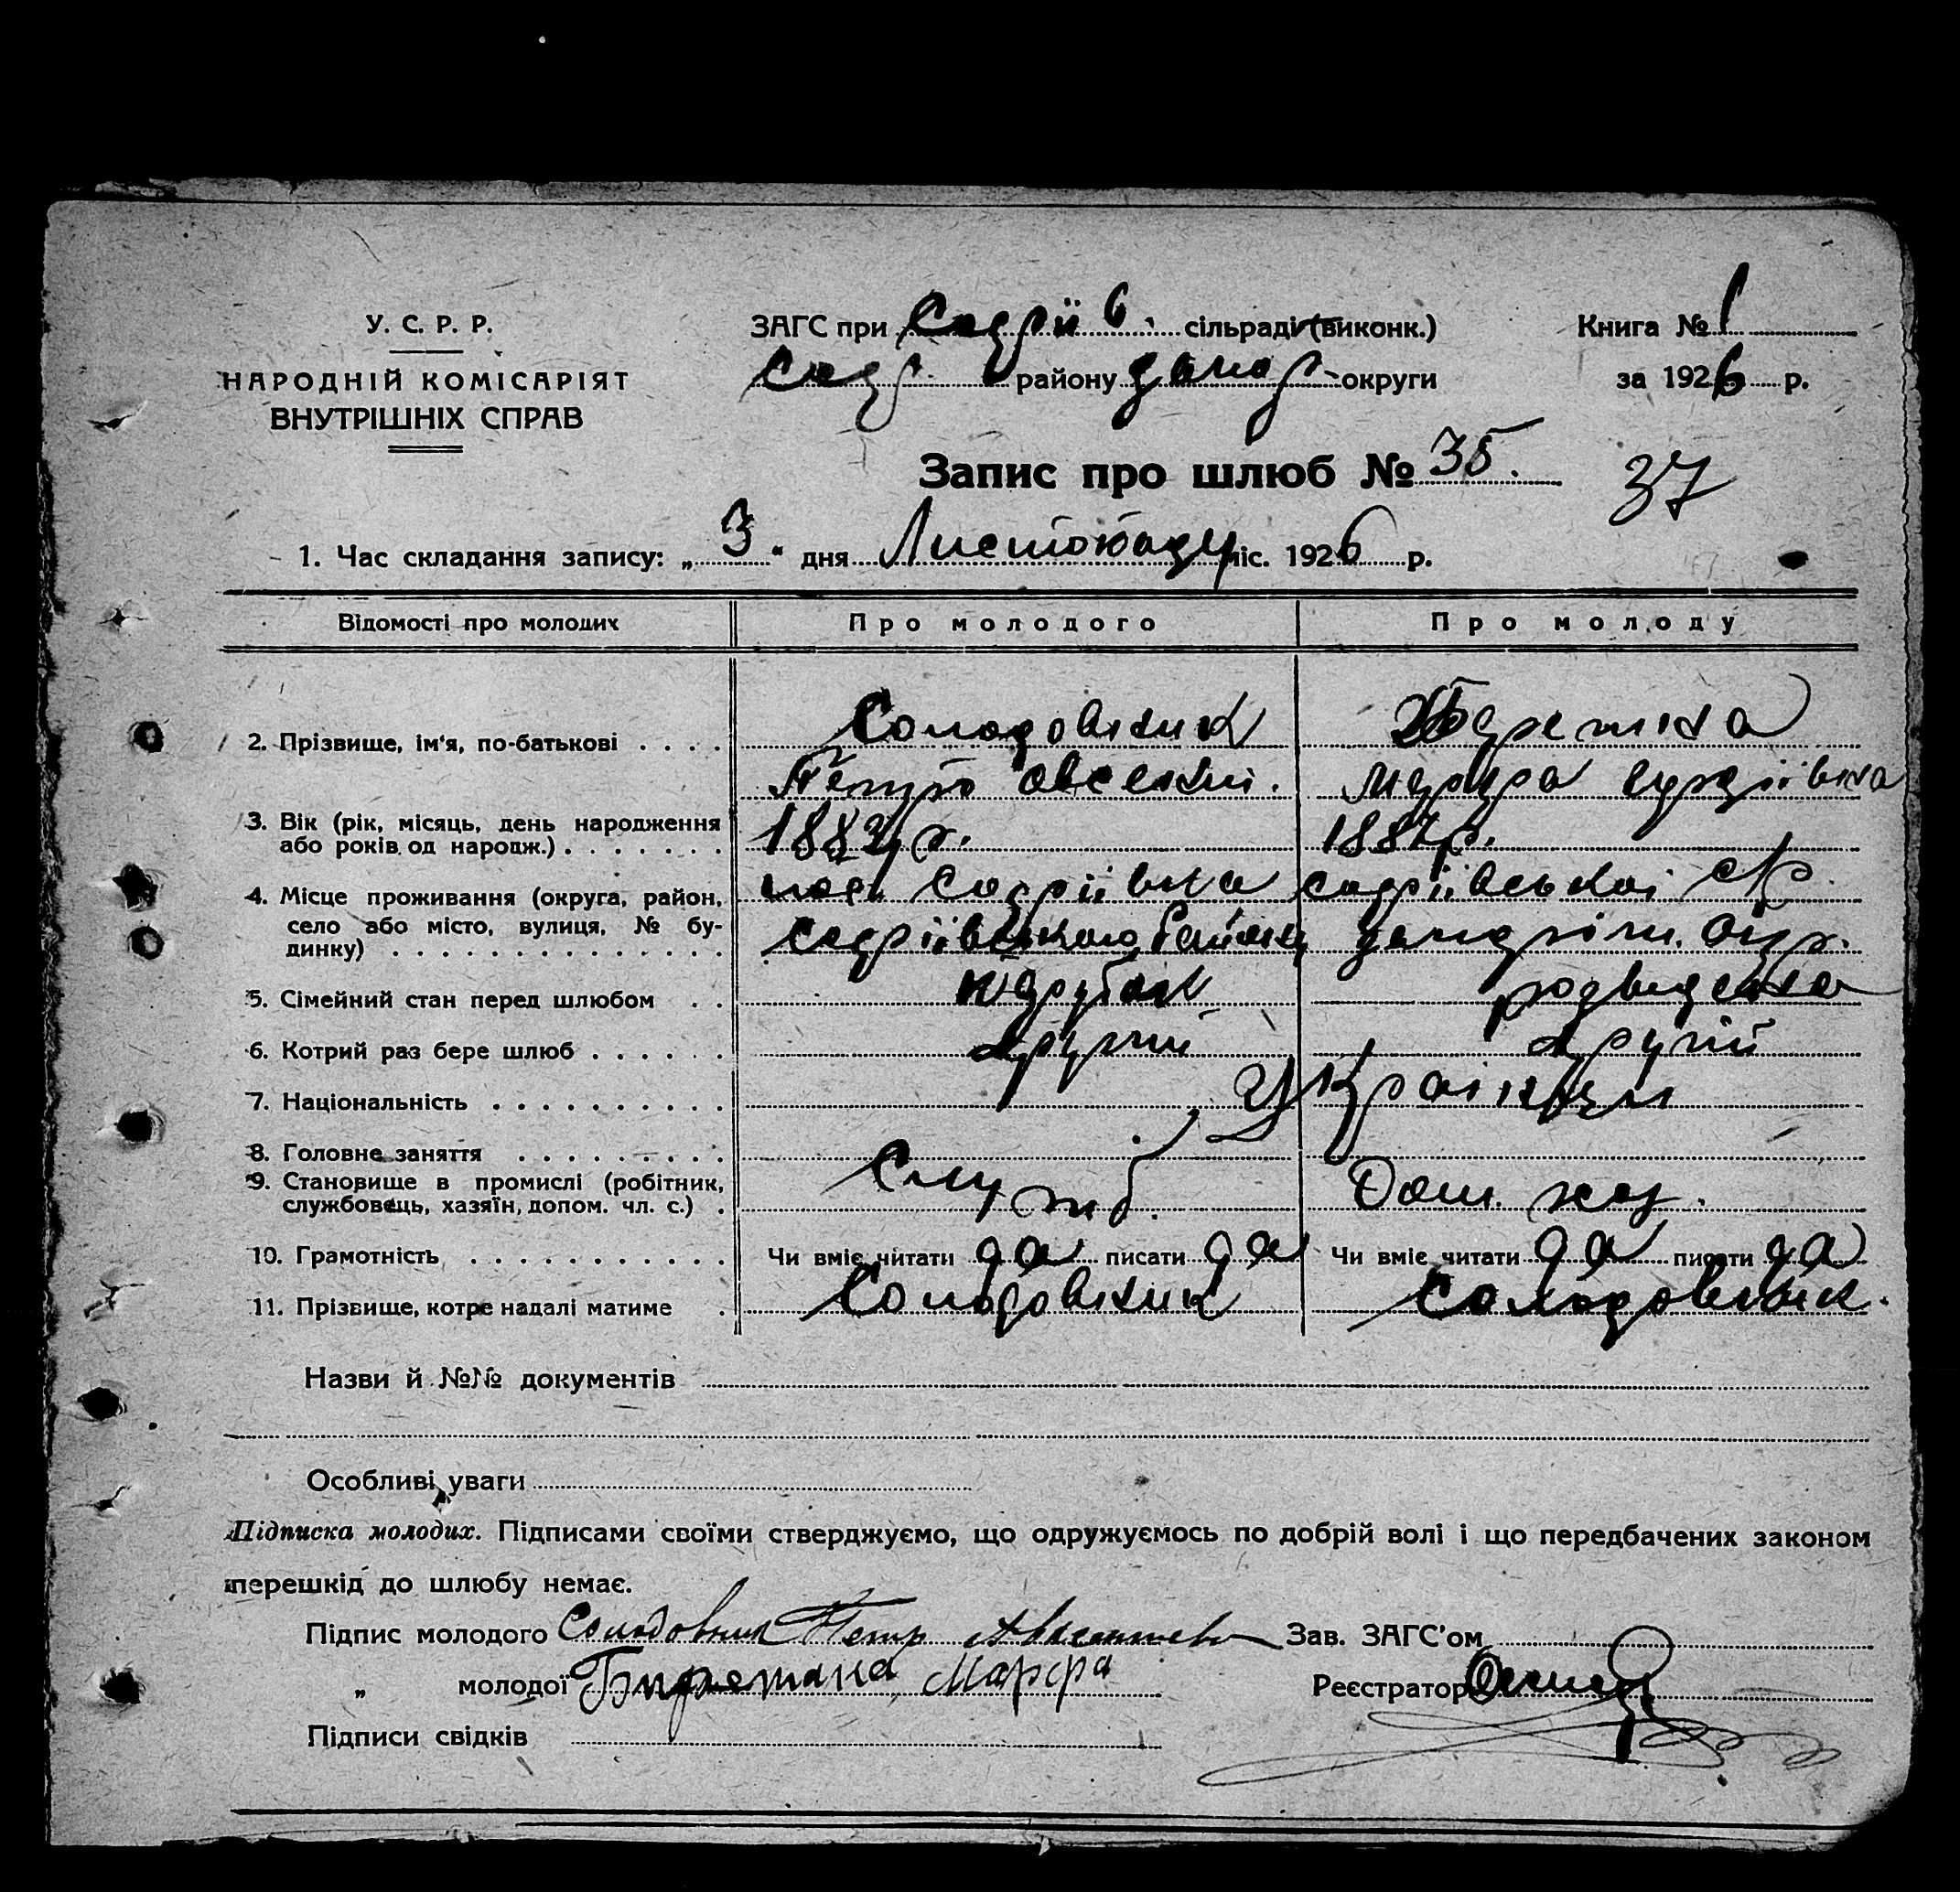 У. С. Р. Р.
НАРОДНІЙ КОМІСАРІЯТ
ВНУТРІШНІХ СПРАВ
ЗАГС при Софіїв. сільраді (виконк.)
Соф. району Запор. округи
Книга № 1
за 1926 р.
Запис про шлюб № 35.
37
1. Час складання запису: „ 3 “ дня Листопаду міс. 1926 р.
Відомості про молодих Про молодого Про молоду
2. Прізвище, ім'я, по-батькові . . . . Солодовник
Петро Овсекий.
3. Вік (рік, місяць, день народження
або років од народж.) . . . . . . . 188 р. 1887 р.
4. Місце проживання (округа, район,
село або місто, вулиця, № бу-
динку) . . . . . . . . . . . . . . .
Софіївка Софіївської
Софіївського району
5. Сімейний стан перед шлюбом . . розведена
6. Котрий раз бере шлюб . . . . . . другий другий
7. Національність . . . . . . . . . . Українці
8. Головне заняття . . . . . . . . .
9. Становище в промислі (робітник,
службовець, хазяїн, допом. чл. с.) . Служб. Дом. хоз.
10. Грамотність . . . . . . . . . . . Чи вміє читати да писати да Чи вміє читати да писати да
11. Прізвище, котре надалі матиме . Солодовник Солодовник.
Назви й №№ документів
Особливі уваги
Підписка молодих. Підписами своїми стверджуємо, що одружуємось по добрій волі і що передбачених законом
перешкід до шлюбу немає.
Підпис молодого Солодовник Петр Зав. ЗАГС'ом
„ молодої Марфа Реєстратор
Підписи свідків